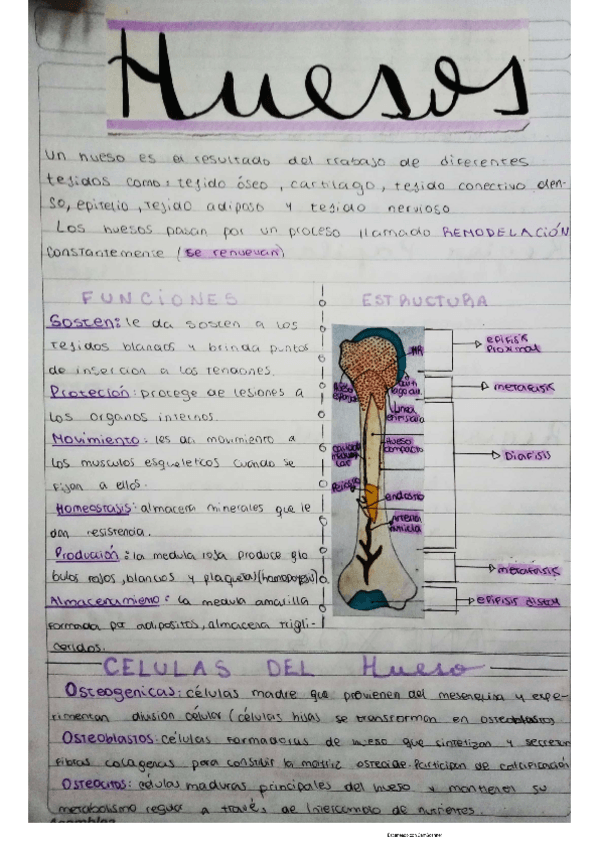 Huesos
Un hueso es el resultado del trabajo de diferentes
tejidos como: tejido óseo, cartilago, tejido conectivo den-
so, epitelio, tejido adiposo y tejido nervioso
Los huesos pasan por un proceso llamado REMODELACIÓN
constantemente (se renuevan)
FUNCIONES
Sosten: le da sosten a los
tejidos blandos y brinda puntos
de insercion a los tendones.
Proteción: protege de lesiones a
los organos internos
Movimiento: les da movimiento a
los musculos esqueleticos cuando se
fijan a ellos.
Homeostasis: almacena minerales que le
dan resistencia.
Producción: la medula roja produce glo
bulos rojos, blancos y plaquetas
Almacenamiento: La medula amarilla
formada por adipositos, almacena trigli-
ceridos.
ESTRUCTURA
epifisis
proximal
MR
metafisis
Linea
Hueso
compacto
Diafisis
endostio
Arteria
metafisis
epifisis distal
CELULAS DEL Hueso
Osteogenicas: células madre que provienen del mesenquisa y expe-
rimentan division célular (células hijas se transforman en osteoblastos
Osteoblastos: células formadoras de hueso que sintetizan y secretan
fibras colagenas para construir la matriz osteoide. Participan de calcificación
Osteocitos: células maduras principales del hueso y mantienen su
metabolismo regular a través de intercambio de nutrientes.
Escaneado con CamScanner